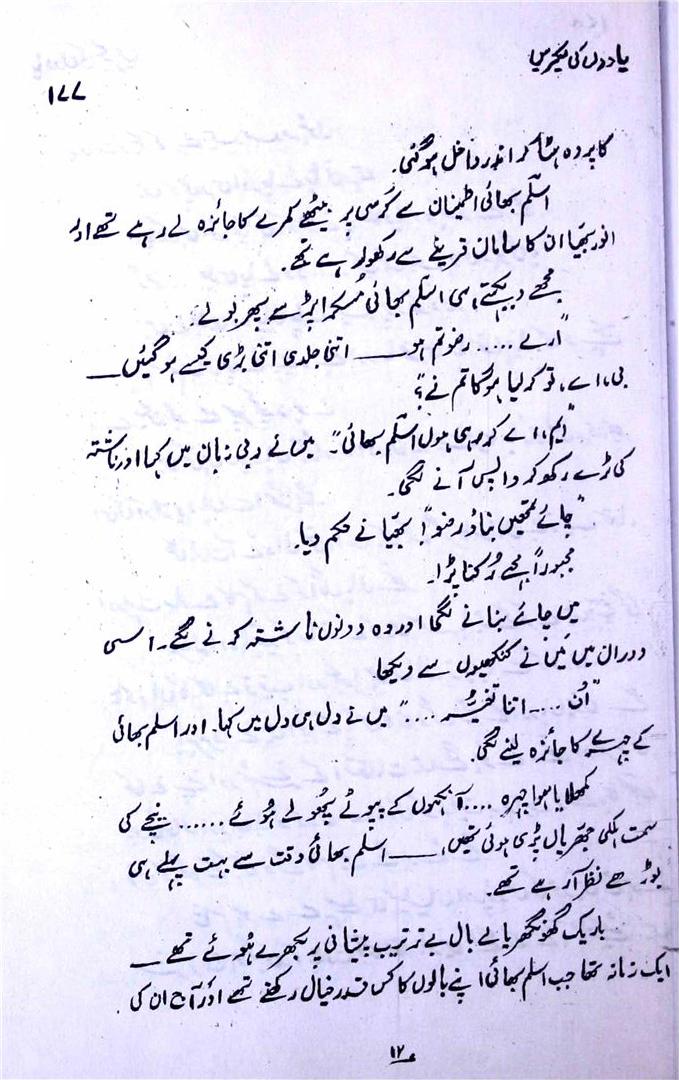 یادوں کی لکیریں
۱۷۷
کا پردہ ہٹا کر اندر داخل ہو گئی۔
اسلم بھائی اطمینان سے کُرسی پر بیٹھے کمرے کا جائزہ لے رہے تھے اور
انور بھیّا ان کا سامان قرینے سے رکھ رہے تھے۔
مجھے دیکھتے ہی اسلم بھائی مُسکرا پڑے پھر بولے۔
"ارے .... رضو تم ہو ــــ اتنی جلدی اتنی بڑی کیسے ہو گئیں ــــ
بی، اے، تو کر لیا ہو گا تم نے؟"
"ایم، اے کر رہی ہوں اسلم بھائی"۔ میں نے دبی زبان میں کہا اور ناشتہ
کی ٹرے رکھ کر واپس آنے لگی۔
"چائے تمھیں بناؤ رضو"! بھیّا نے حکم دیا۔
مجبوراً مجھے رُکنا پڑا۔
میں چائے بنانے لگی اور وہ دونوں ناشتہ کرنے لگے۔ اسی
دوران میں مَیں نے کنکھیوں سے دیکھا۔
"اُن .... اتنا تغیّر ...." میں نے دل ہی دل میں کہا۔ اور اسلم بھائی
کے چہرے کا جائزہ لینے لگی۔
کمھلایا ہوا چہرہ .... آنکھوں کے پپوٹے پھُولے ہُوئے ...... نیچے کی
سمت ہلکی جھریاں پڑی ہوئی تھیں، ــــ اسلم بھائی وقت سے بہت پہلے ہی
بوڑھے نظر آ رہے تھے۔
باریک گھونگھریالے بال بے ترتیب پیشانی پر بکھرے ہُوئے تھے ــــ
ایک زمانہ تھا جب اسلم بھائی اپنے بالوں کا کس قدر خیال رکھتے تھے اور آج ان کی
۱۲